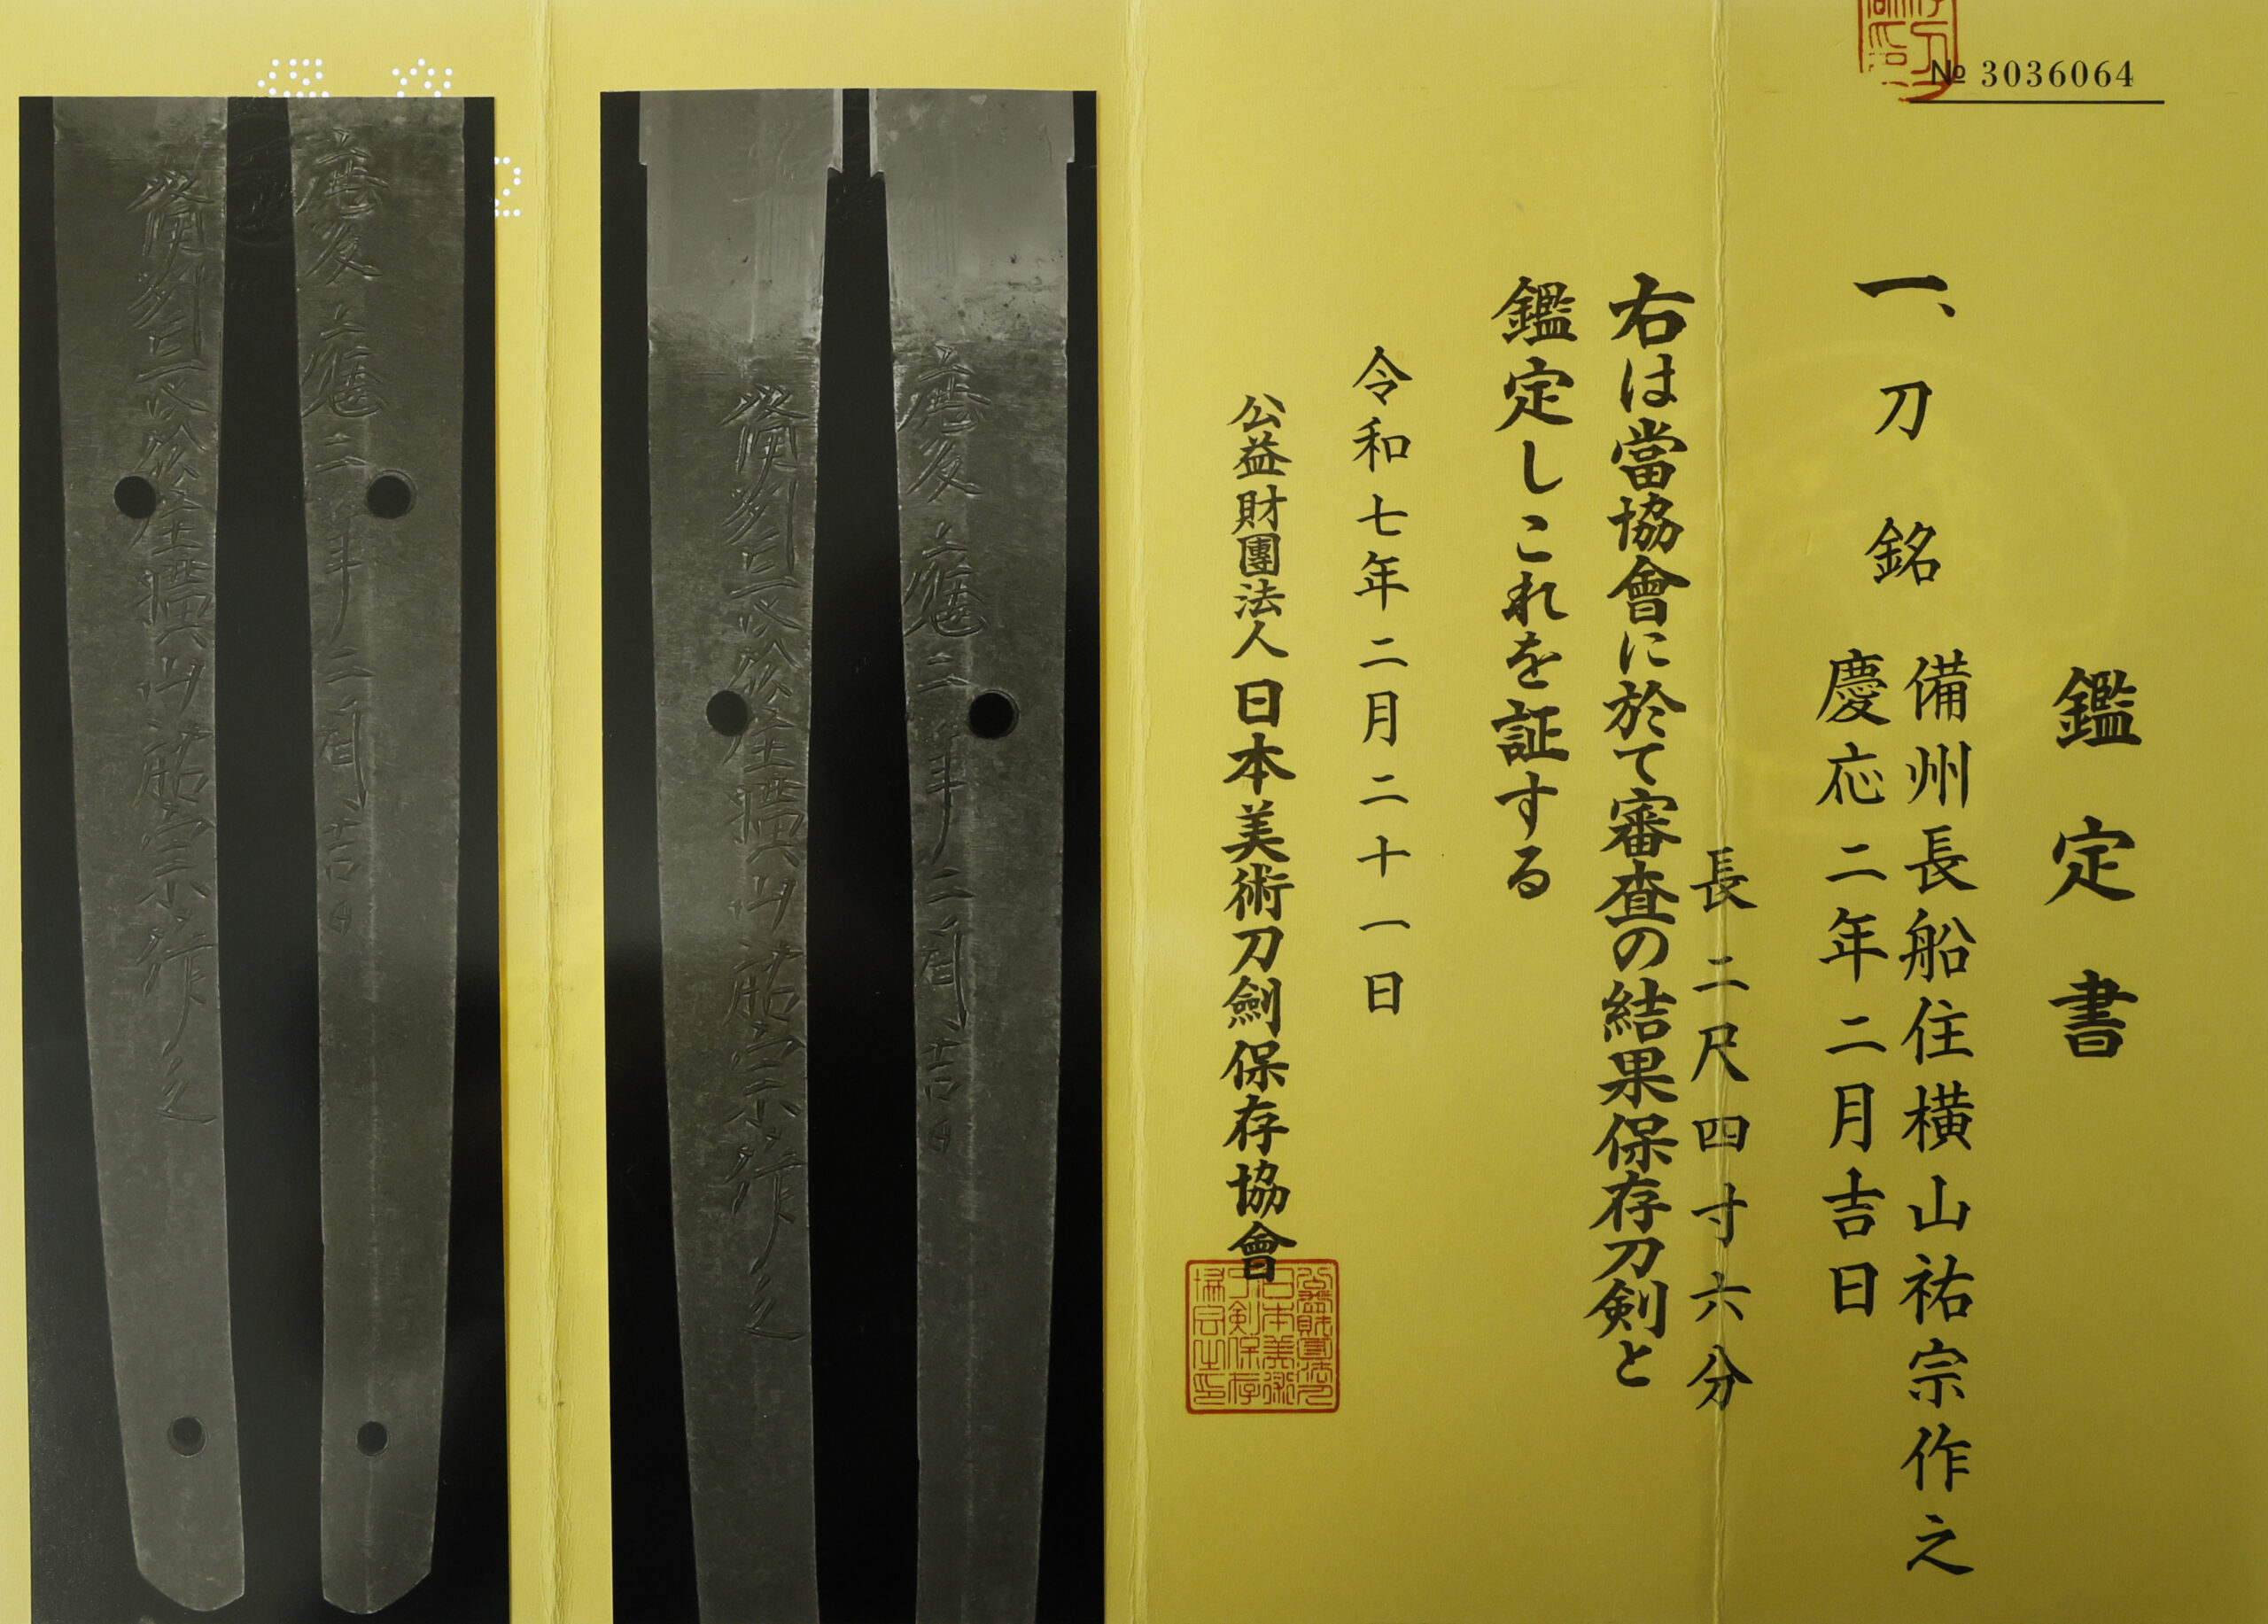 № 3036064
鑑定書
一、刀 銘 備州長船住横山祐宗作之
慶応二年二月吉日
長 二尺四寸六分
右は當協會に於て審査の結果保存刀剣と
鑑定しこれを証する
令和七年二月二十一日
公益財團法人 日本美術刀劍保存協會
慶應二年二月吉日
備州長船住横山祐宗作之
慶應二年二月吉日
備州長船住横山祐宗作之